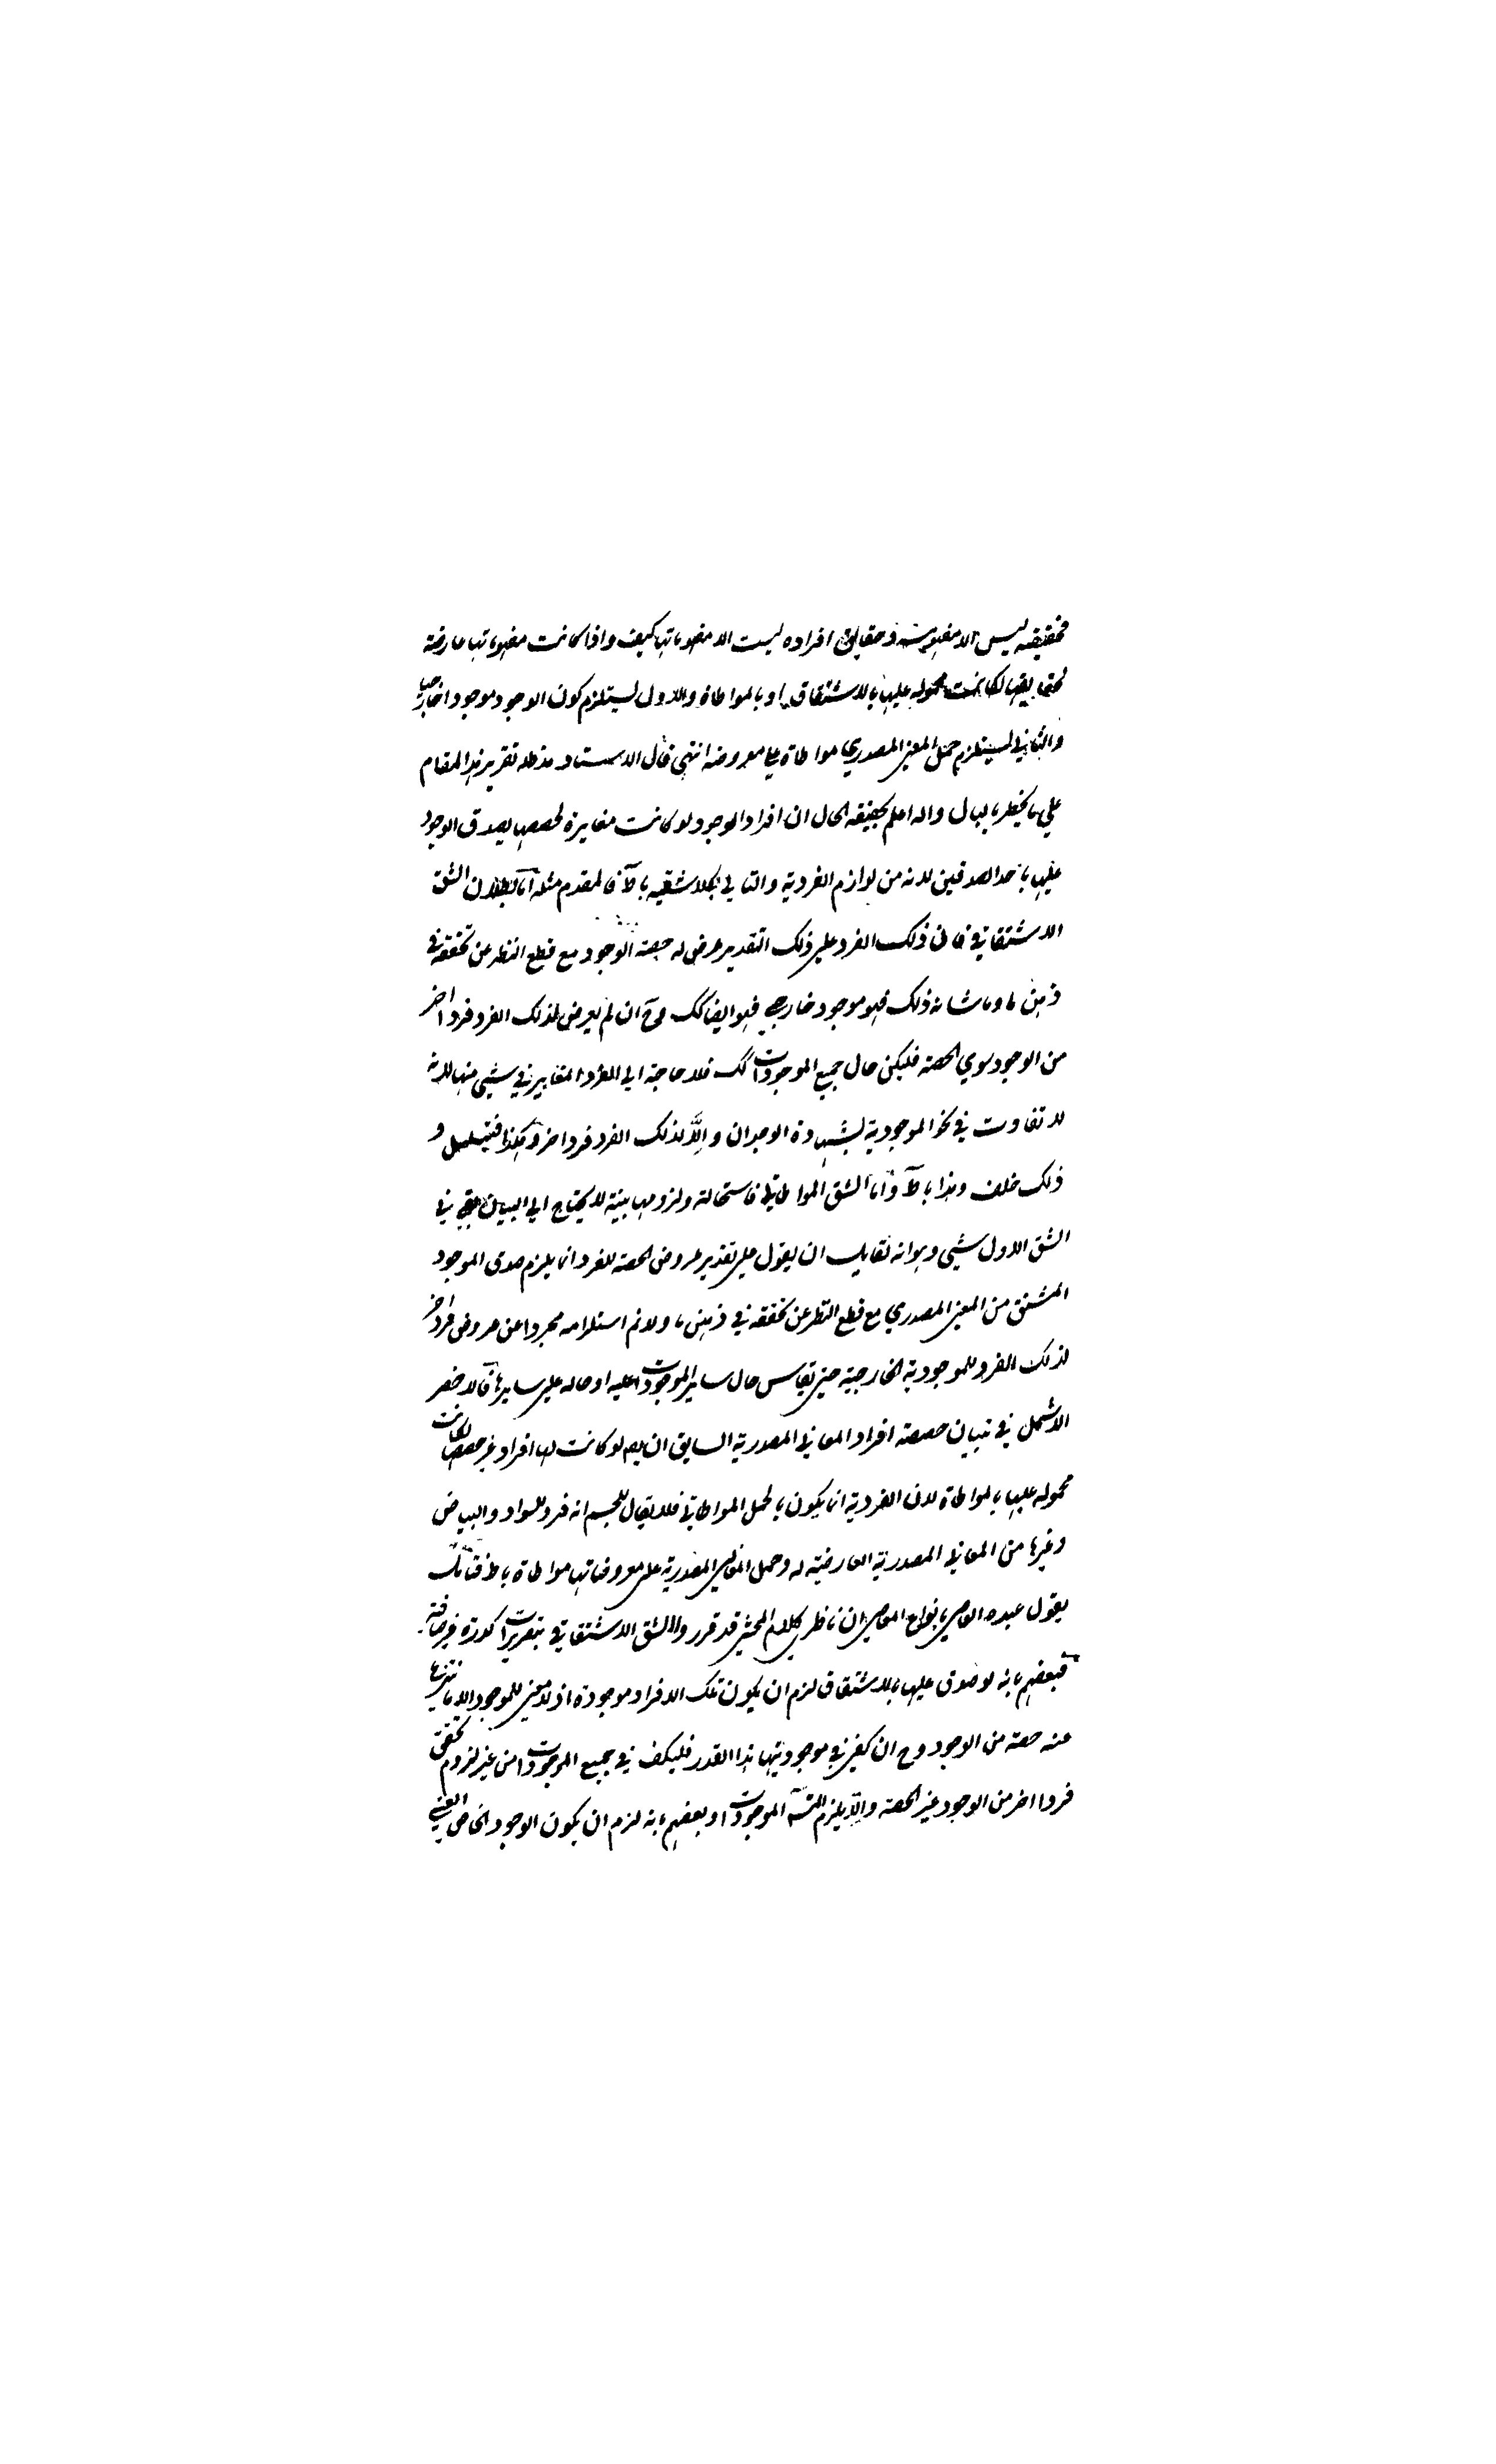 فحقيقته ليس الا مفهومه وحقايق افراده ليست الا مفهوماتها كيف واذا كانت مفهوماتها عارضة
لحقايقها لكانت محمولة عليها بالاشتقاق او بالمواطاة والاول يستلزم كون الوجود موجودا خارجيا
والثاني يستلزم حمل المعنى المصدري مواطاة على معروضه انتهى قال الاستاد مدظله تقرير هذا المقام
على ما يخطر بالبال والله اعلم بحقيقة الحال ان افراد الوجود لو كانت مغايرة لحصصها يصدق الوجود
عليها باحد الصدقين لانه من لوازم الفردية والتالي بكلا شقيه باطل فالمقدم مثله اما بطلان الشق
الاشتقاقي فان ذلك الفرد على ذلك التقدير عرض له حصة الوجود مع قطع النظر عن تحققه في
ذهن ما وما شانه ذلك فهو موجود خارجي فهو ايضا كك فح ان لم يعرض لذلك الفرد فردا اخر
من الوجود سوى الحصة فليكن حال جميع الموجودات كك فلا حاجة الى الفرد المغاير في شيء منها لانه
لا تفاوت في نحو الموجودية بشهادة الوجدان والا لذلك الفرد فردا اخر وهكذا فيتسلسل و
ذلك خلف وهذا باطل واما الشق المواطاتي فاستحالته ولزومها بينة لا يحتاج الى البيان بقي في
الشق الاول شيء وهو انه لقايل ان يقول على تقدير عروض الحصة للفرد انما يلزم صدق الموجود
المشتق من المعنى المصدري مع قطع النظر عن تحققه في ذهن ما ولا نم استلزامه مجردا عن عروض فرد اخر
لذلك الفرد للموجودية الخارجية حتى يقاس حال ساير الموجودات عليه او حاله على سايرها فالاخصر
الاشمل في تبيان حصصة افراد المعاني المصدرية السابق ان يقال لو كانت لها افراد غير حصصها لكانت
محمولة عليها بالمواطاة لان الفردية انما يكون بالحمل المواطاتي فلا يقال للجسم انه فرد للسواد والبياض
وغيرها من المعاني المصدرية العارضية له وحمل المعاني المصدرية على معروضاتها مواطاة باطل فتامل
يقول عبده العاصي بانواع المعاصي ان ناظري كلام المحشي قد قرروا الشق الاشتقاقي بتقريرات كدرة غير صافية
فبعضهم بانه لو صدق عليها بالاشتقاق لزم ان يكون تلك الافراد موجودة اذ لا معنى للموجود الا ما ينتزع
عنه حصة من الوجود وح ان كفى في موجوديتها هذا القدر فليكف في جميع الموجودات من غير لزوم تحقق
فردا اخر من الوجود غير الحصة والا يلزم التسلسل الموجودات وبعضهم بانه لزم ان يكون الوجود الخاص اعني